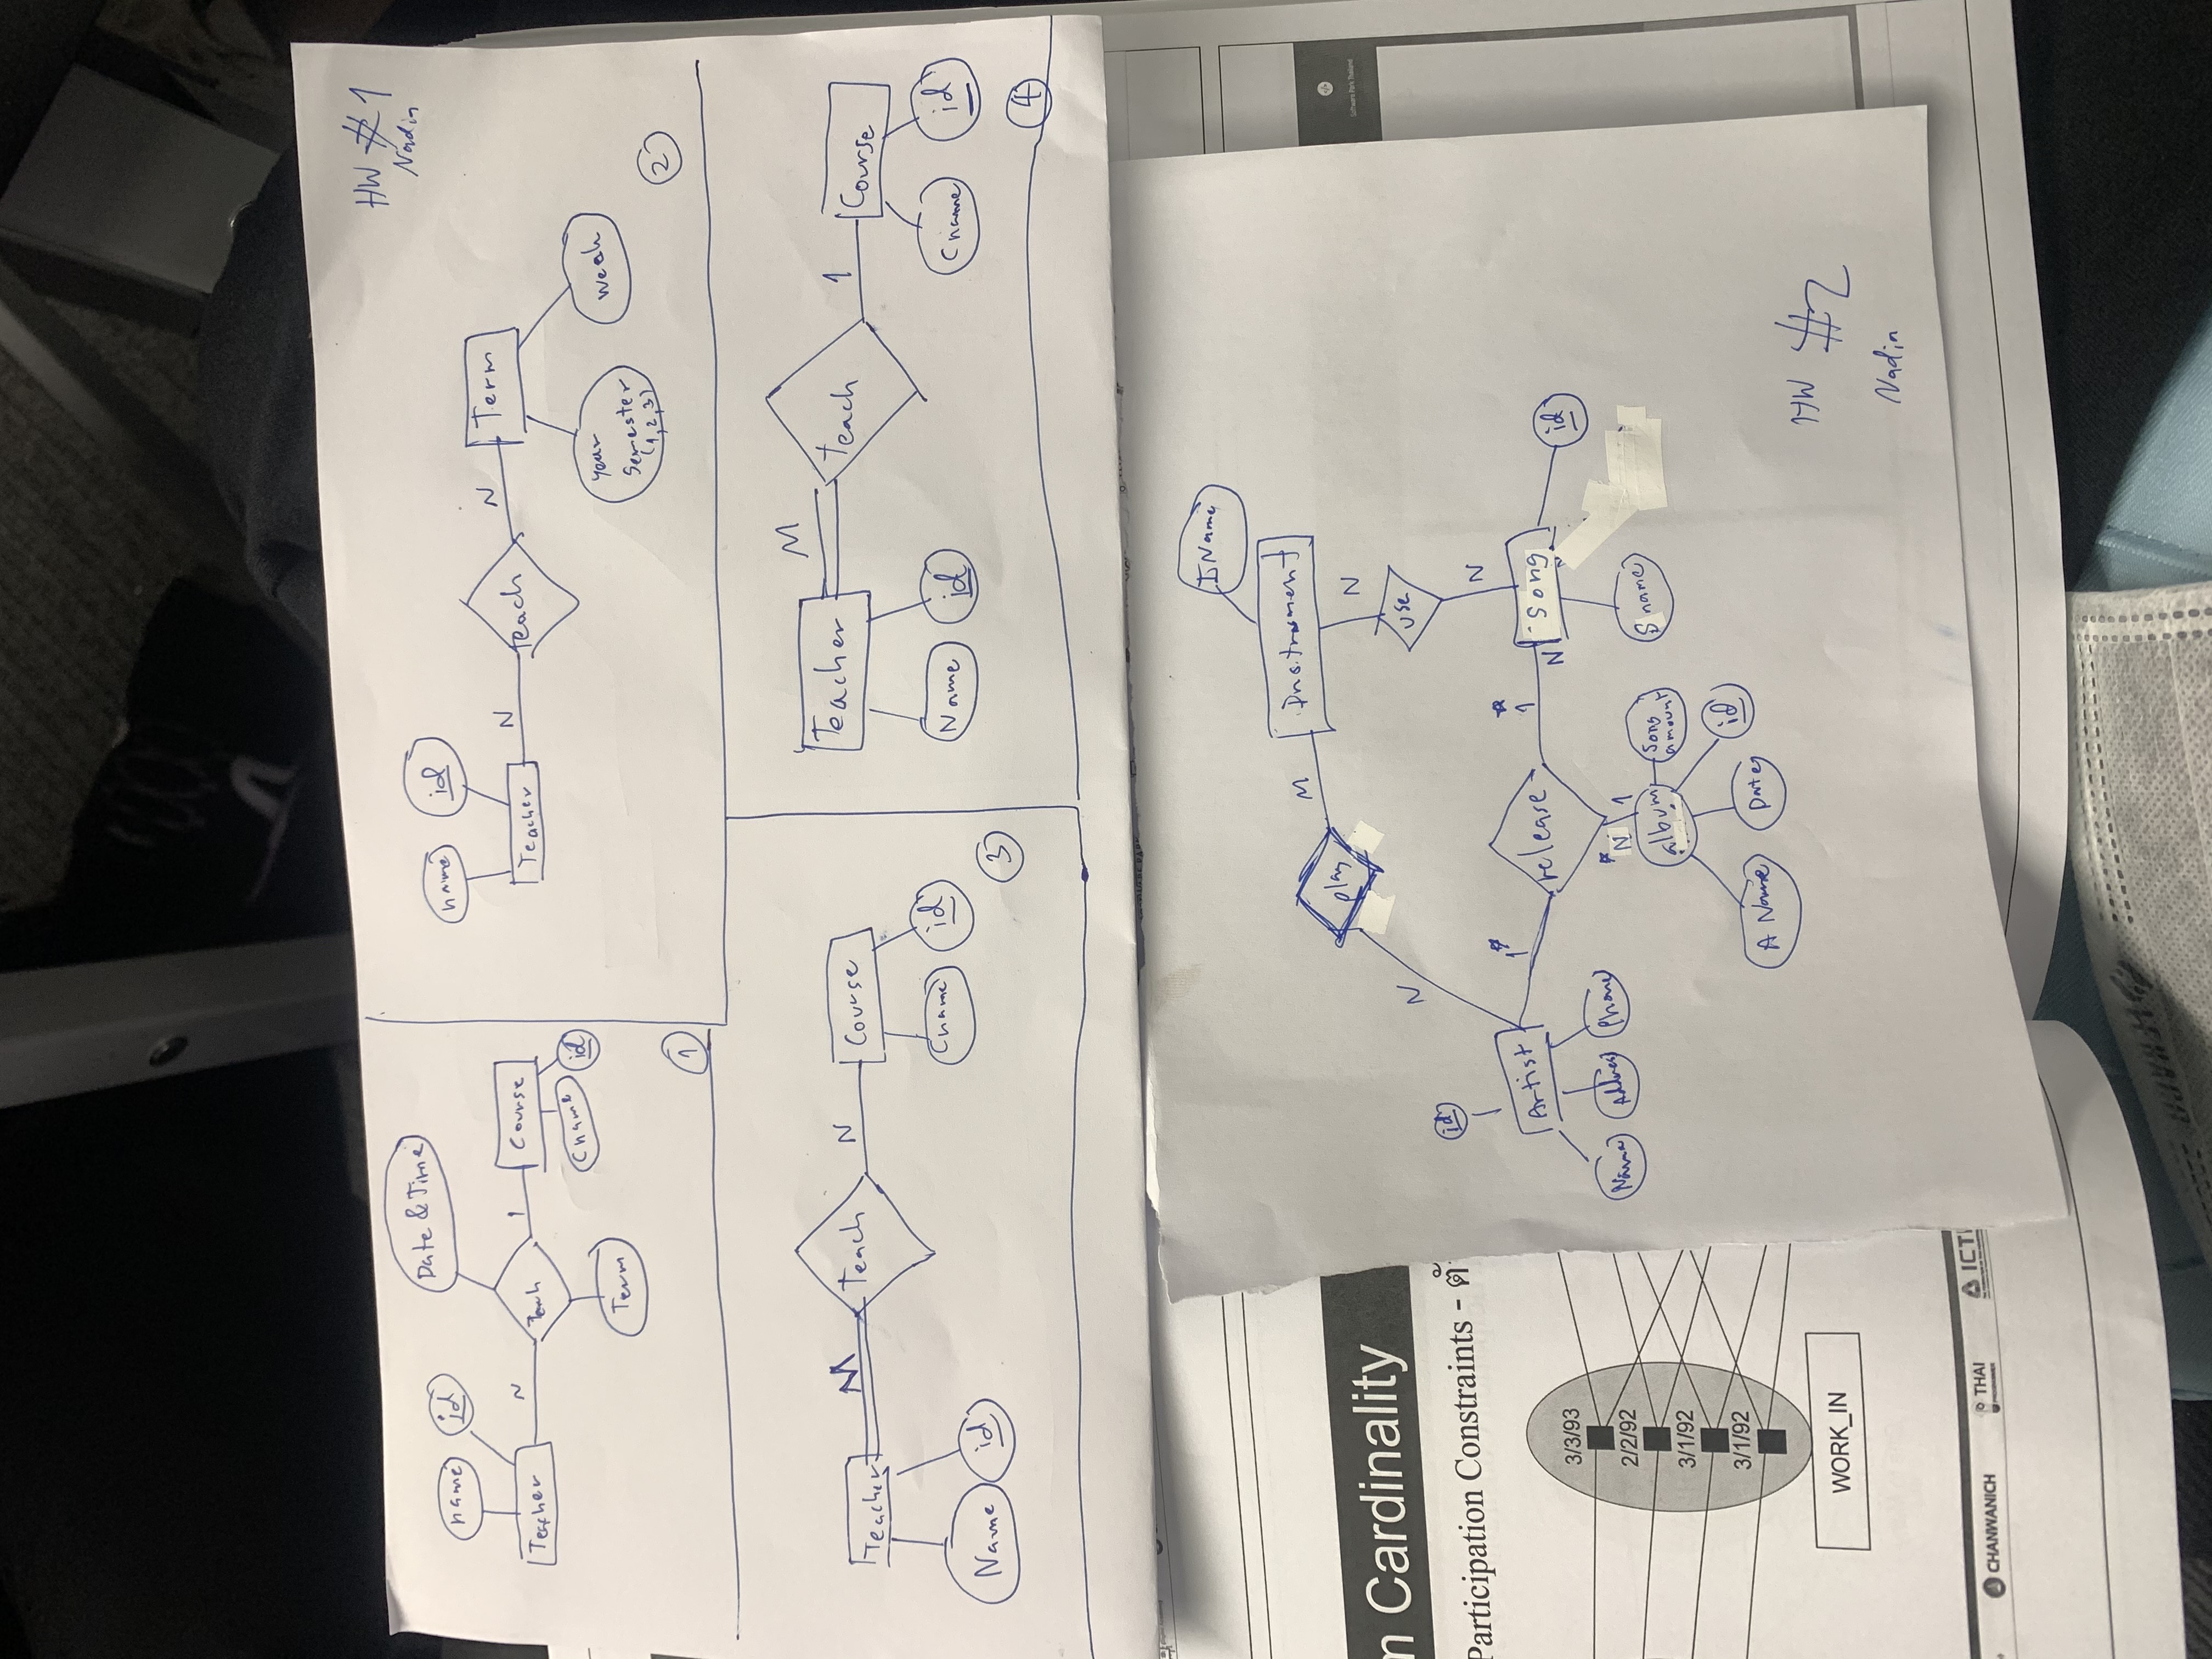 HW #1
Nadin
Date & Time
name
id
Teacher
N
Teach
1
Course
Cname
id
Term
1
name
id
Teacher
N
teach
N
Term
Year
Semester
(1,2,3)
week
2
Teacher
M
Teach
N
Course
Name
id
Cname
id
3
Teacher
M
teach
1
Course
Name
id
Cname
id
4
IName
Instrument
M
play
N
N
use
N
id
Artist
1*
release
*
1
N
Song
id
Name
Address
Phone
*
N
1
album
Song
amount
S name
A Name
Date
id
HW #2
Nadin
m Cardinality
Participation Constraints - ตั
3/3/93
2/2/92
3/1/92
3/1/92
WORK_IN
CHANWANICH
THAI
PROGRAMMER
ICTI
Software Park Thailand